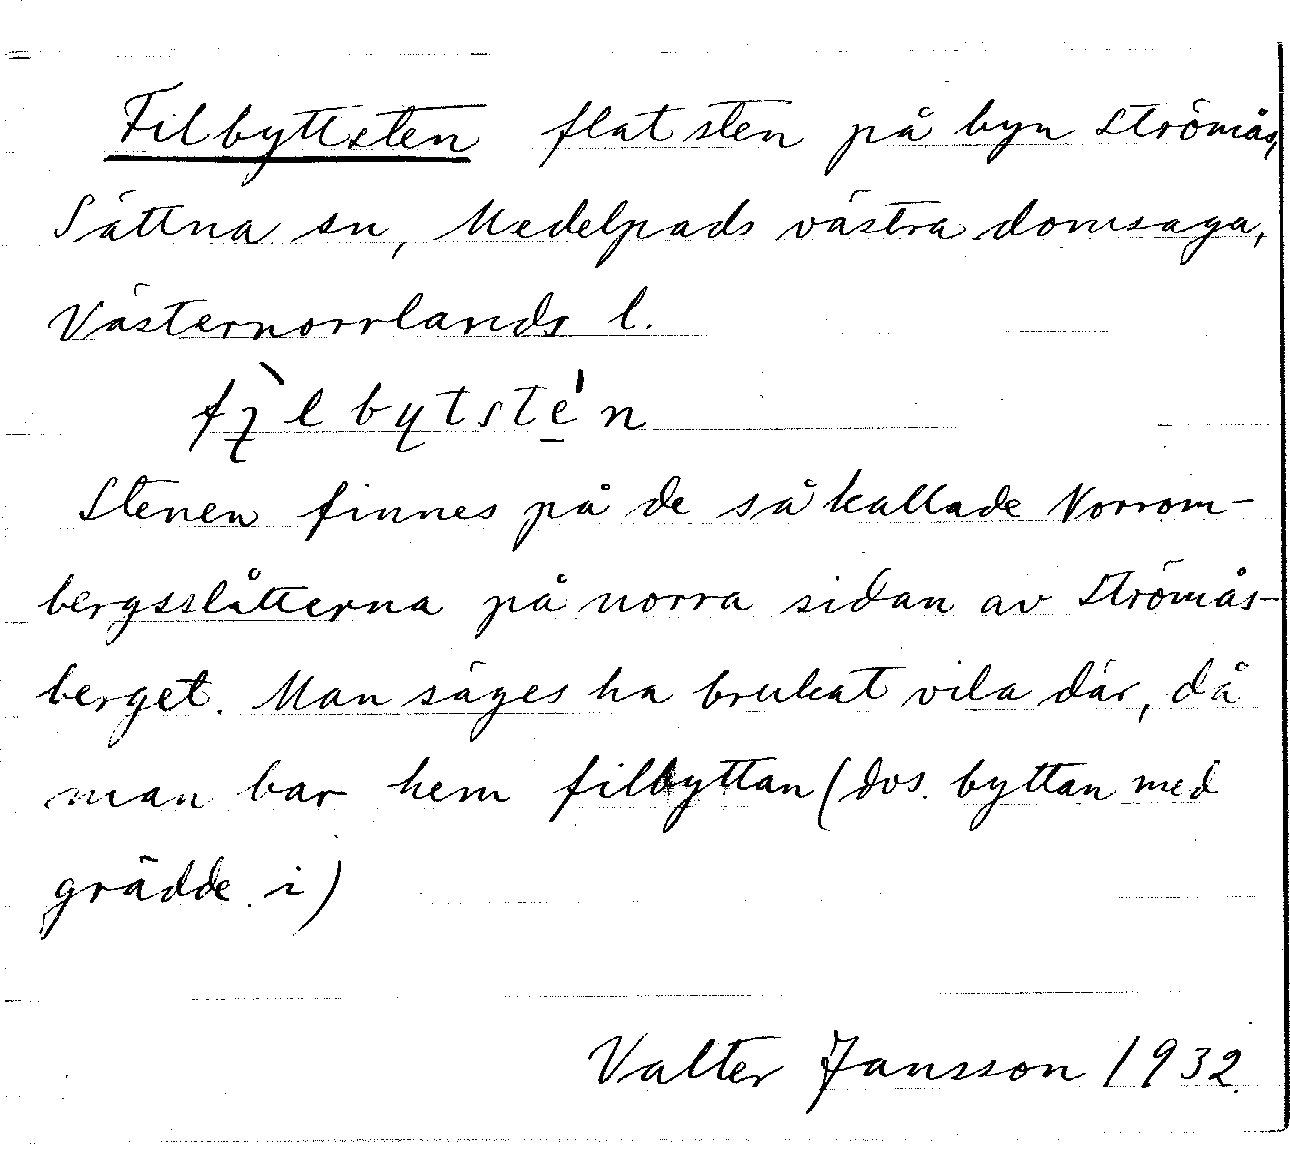 Filbyttsten flat sten på byn Strömås,
Sättna sn, Medelpads västra domsaga,
Västernorrlands l.
Stenen finnes på de så kallade Norrom-
bergsslåtterna på norra sidan av Strömås-
berget. Man säges ha brukat vila där, då
man bar hem filbyttan (dvs. byttan med
grädde i)
Valter Jansson 1932.